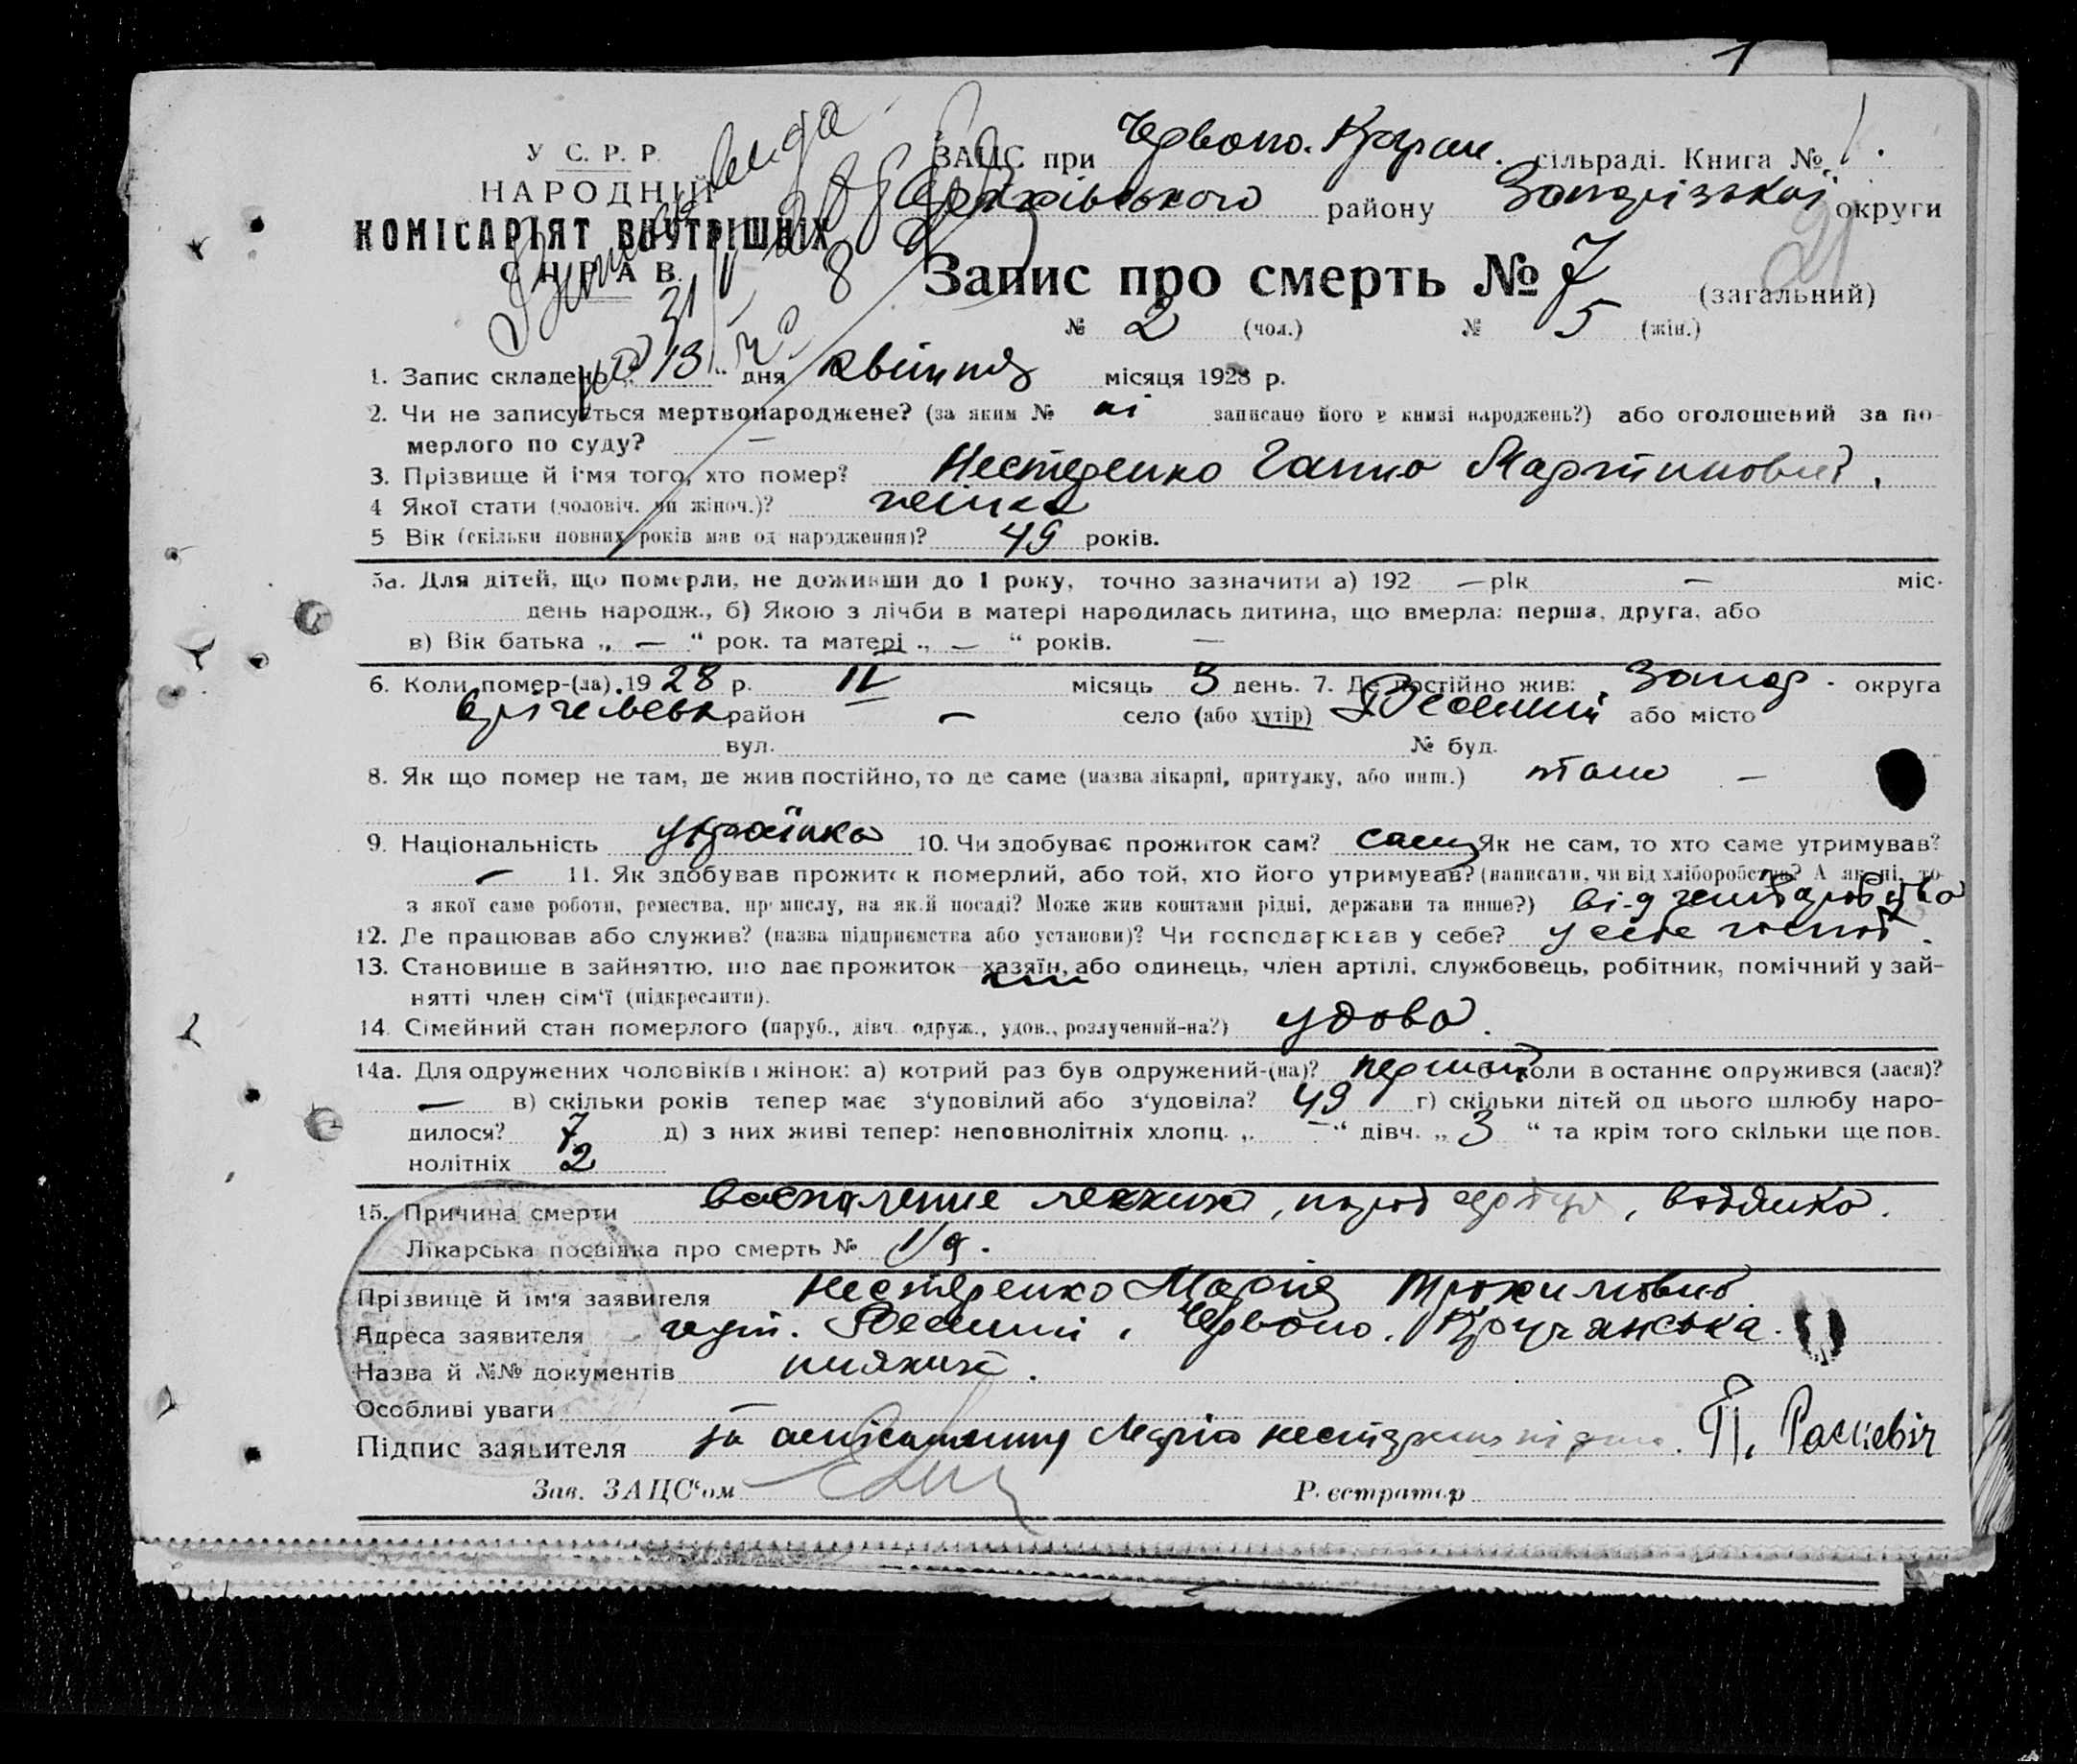 1
У С. Р. Р.
НАРОДНИЙ
КОМІСАРІЯТ ВНУТРІШНІХ
СПРАВ.
ЗАЦС при Червоно. Кручан. сільраді. Книга № 1.
району Запорізької округи
21
Запис про смерть № 7 (загальний)
№ 2 (чол.) № 5 (жін.)
1. Запис складено „ 13 “ дня квітня місяця 1928 р.
2. Чи не записується мертвонароджене? (за яким № ні записано його в книзі народжень?) або оголошений за по-
мерлого по суду? —
3. Прізвище й ім'я того, хто помер? Нестеренко Ганна Мартиновна.
4 Якої стати (чоловіч. чи жіноч.)? жінка
5 Вік (скільки повних років мав од народження)? 49 років.
5а. Для дітей, що померли, не доживши до 1 року, точно зазначити а) 192 — рік — міс.
день народж., б) Якою з лічби в матері народилась дитина, що вмерла: перша, друга, або
в) Вік батька „ — “ рок. та матері „ — “ років. —
6. Коли помер-(ла). 19 28 р. IV місяць 3 день. 7. Де постійно жив: Запор. округа
район — село (або хутір) або місто
вул. № буд.
8. Як що помер не там, де жив постійно, то де саме (назва лікарні, притулку, або инш.) там —
9. Національність українка 10. Чи здобуває прожиток сам? сам Як не сам, то хто саме утримував?
— 11. Як здобував прожиток померлий, або той, хто його утримував? (написати, чи від хліборобства? А як ні, то
з якої саме роботи, ремества, промислу, на якій посаді? Може жив коштами рідні, держави та инше?) від
12. Де працював або служив? (назва підприємства або установи)? Чи господарював у себе? у себе госпód.
13. Становище в зайняттю, що дає прожиток—хазяїн, або одинець, член артілі, службовець, робітник, помічний у зай-
нятті член сім'ї (підкреслити).
14. Сімейний стан померлого (паруб., дівч. одруж., удов., розлучений-на?) удова.
14а. Для одружених чоловіків і жінок: а) котрий раз був одружений-(на)? перший коли востаннє одружився (лася)?
— в) скільки років тепер має з'удовілий або з'удовіла? 49 г) скільки дітей од цього шлюбу наро-
дилося? 7 д) з них живі тепер: неповнолітніх хлопц. „ — “ дівч. „ 3 “ та крім того скільки ще пов.
нолітніх 2
15. Причина смерти воспаление легких, порок сердця, водянка.
Лікарська посвідка про смерть № 1/9.
Прізвище й ім'я заявителя Нестеренко Марія Трохимовна
Адреса заявителя хут. Червоно. Кручанська.
Назва й №№ документів
Особливі уваги —
Підпис заявителя за Марію Нестеренко П. Раскевіч
Зав. ЗАЦС'ом
Реєстратор